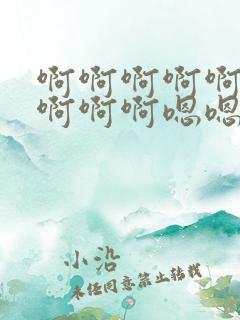 啊啊啊啊啊
啊啊啊嗯嗯
小沿
未经同意禁止转载